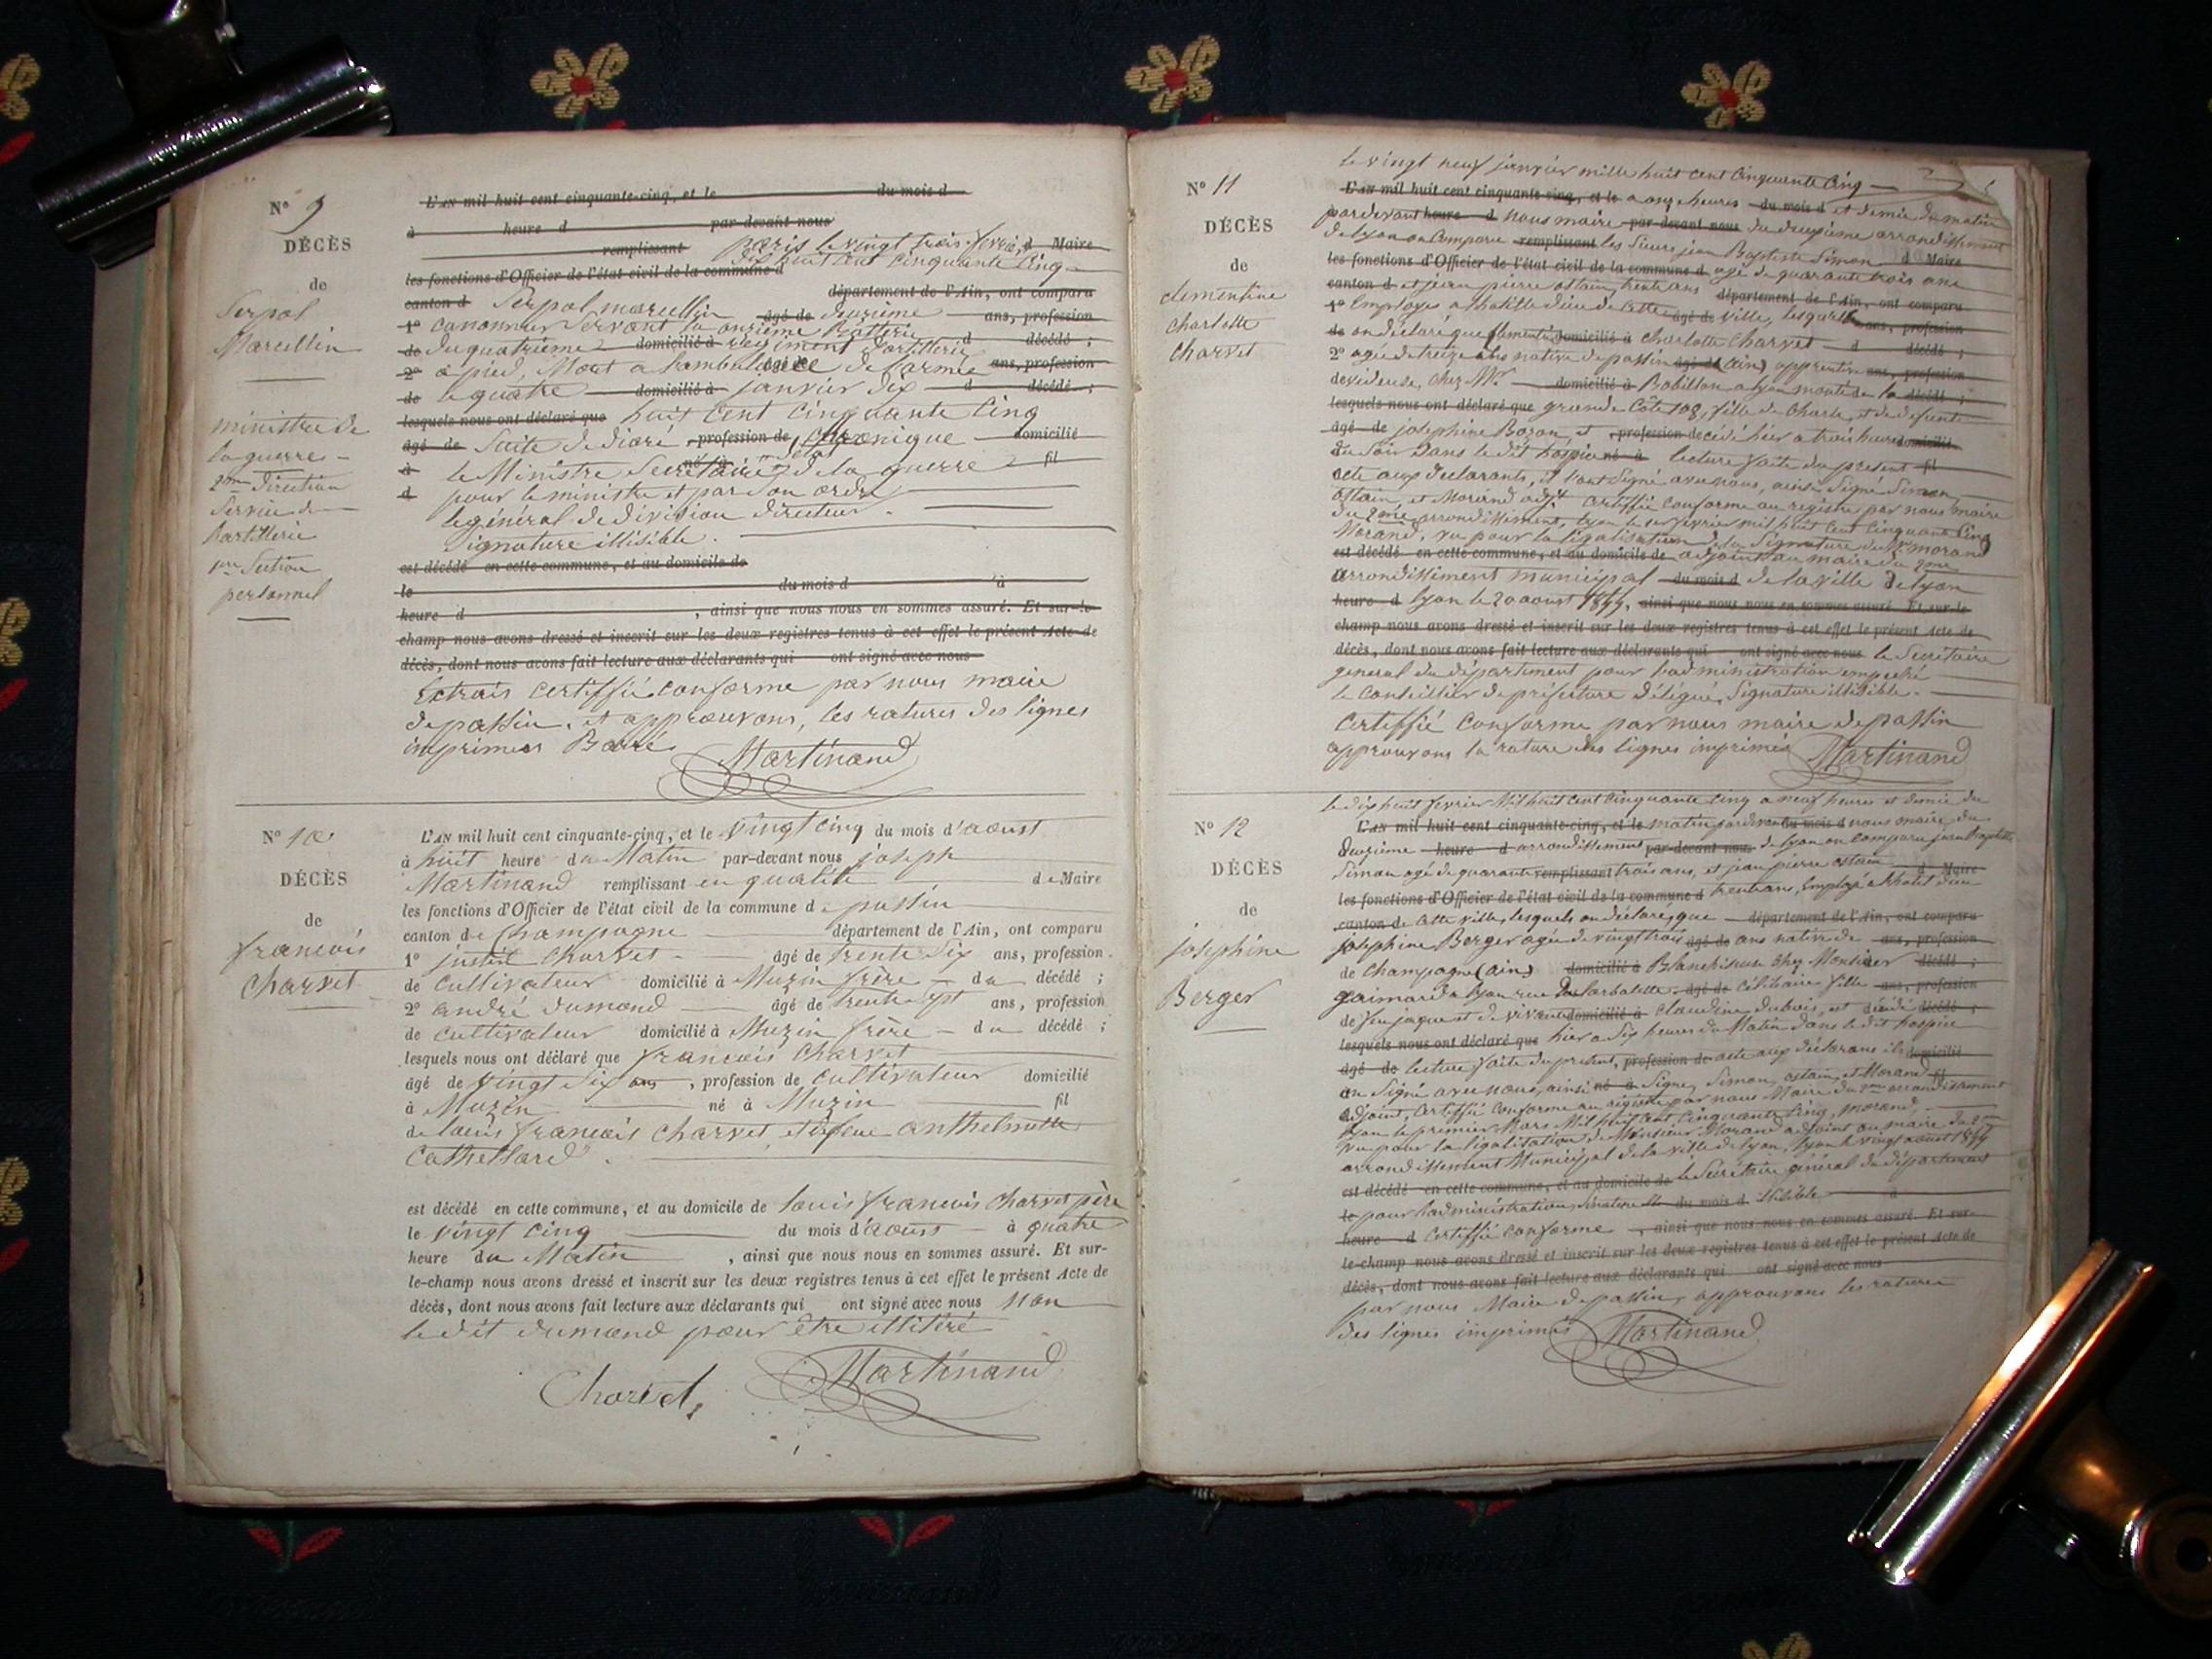 N° 9
DÉCÈS
de
Serpol
Marcellin
ministre de
la guerre
2me direction
Service de
l'artillerie
1re Section
personnel
L'AN mil huit cent cinquante-cinq, et le du mois d
à heure d par-devant nous
remplissant paris le vingt trois fevrier d Maire
dix huit cent cinquante Cinq
les fonctions d'Officier de l'état civil de la commune d
canton d Serpol marcellin département de l'Ain, ont comparu
1° canonnier Servant la onzième Batterie âgé de deuxième ans, profession
de du quatrième domicilié à regiment d'artillerie d décédé ;
2° a pied, Mort a l'ambulance âgé de de l'armée ans, profession
de le quatre domicilié à janvier dix d décédé ;
lesquels nous ont déclaré que huit Cent Cinquante Cinq
âgé de Suite de diaré , profession de Chronique domicilié
à le Ministre Secrétaire né à d'état de la guerre fil
d pour le ministre et par Son ordre
le général de division directeur.
Signature illisible.
est décédé en cette commune, et au domicile de
le du mois d à
heure d , ainsi que nous nous en sommes assuré. Et sur-le-
champ nous avons dressé et inscrit sur les deux registres tenus à cet effet le présent Acte de
décès, dont nous avons fait lecture aux déclarants qui ont signé avec nous
Extrais certiffié conforme par nous maire
de passin. et approuvons, les ratures des lignes
imprimées Barré
Martinand
N° 10
DÉCÈS
de
francois
Charvet
L'AN mil huit cent cinquante-cinq, et le Vingt cinq du mois d'aoust
à huit heure du Matin par-devant nous joseph
Martinand remplissant en qualité de Maire
les fonctions d'Officier de l'état civil de la commune de passin
canton de Champagne département de l'Ain, ont comparu
1° justin Charvet âgé de trente Six ans, profession
de Cultivateur domicilié à Muzin frère du décédé ;
2° andré dumond âgé de trente sept ans, profession
de cultivateur domicilié à Muzin frère du décédé ;
lesquels nous ont déclaré que francois Charvet
âgé de vingt Six ans , profession de Cultivateur domicilié
à Muzin né à Muzin fil
de louis francois Charvet, et de feue anthelmette
Cathelard.
est décédé en cette commune, et au domicile de louis francois Charvet père
le vingt cinq du mois d'aoust à quatre
heure du Matin , ainsi que nous nous en sommes assuré. Et sur-
le-champ nous avons dressé et inscrit sur les deux registres tenus à cet effet le présent Acte de
décès, dont nous avons fait lecture aux déclarants qui ont signé avec nous Non
le dit dumond pour être illitéré
Charvet Martinand
N° 11
DÉCÈS
de
clementine
Charlotte
Charvet
le vingt neuf janvier mille huit cent Cinquante Cinq
L'AN mil huit cent cinquante-cinq, et le a onze heures du mois d et demie du matin
pardevant heure d nous maire par-devant nous du deuxième arrondissement
de lyon on Comparu remplissant les Sieurs jean Baptiste Simon d Maire
les fonctions d'Officier de l'état civil de la commune d agé de quarante trois ans
canton d et jean pierre ostain, trente ans département de l'Ain, ont comparu
1° Employés a l'hôtel dieu de Cette âgé de ville, lesquels ans, profession
de on déclaré que Clementine domicilié à Charlotte Charvet d décédé ;
2° agée de treize ans native de passin âgé de (ain) apprentie ans, profession
devideuse, chez Mr domicilié à Bobillon a lyon montée de la décédé ;
lesquels nous ont déclaré que grande Côte 108, fille de Charle, et de defunte
âgé de josephine Bozon, et , profession de décédé hier a trois heures domicilié
du Soir Dans le dit hospice né à lecture faite du present fil
acte aux declarants, il l'ont Signé avec nous, ainsi Signé Simon,
ostain, et Morand adjt Certiffié Conforme au registre par nous maire
du 2me arrondissement, lyon le 1er fevrier mil huit Cent Cinquante Cinq
Morand, vu pour la légalisation de la Signature de Mr Morand
est décédé en cette commune, et au domicile de adjoint au maire du 2me
arrondissement municipal du mois d de la ville de lyon
heure d lyon le 20 aoust 1855, ainsi que nous nous en sommes assuré. Et sur-le-
champ nous avons dressé et inscrit sur les deux registres tenus à cet effet le présent Acte de
décès, dont nous avons fait lecture aux déclarants qui ont signé avec nous le Secrétaire
general du département pour l'administration empeché
le Conseillier de préfecture délégué, Signature illisible.
Certiffié Conforme par nous maire de passin
approuvons la rature des lignes imprimées
Martinand
N° 12
DÉCÈS
de
josephine
Berger
le dix huit fevrier Mil huit cent Cinquante Cinq a neuf heures et demie du
L'AN mil huit cent cinquante-cinq, et le matin pardevant du mois d nous maire du
deuxième heure d arrondissement par-devant nous de lyon on Comparu jean Baptiste
Simon agé de quarante remplissant trois ans, et jean pierre ostain d Maire
les fonctions d'Officier de l'état civil de la commune d trente ans, Employé a l'hotel dieu
canton de Cette ville, lesquels on déclaré que département de l'Ain, ont comparu
josephine Berger agée de vingt trois âgé de ans native de ans, profession
de Champagne (ain) domicilié à Blanchisseuse Chez Monsieur décédé ;
gaimard a lyon rue de larbalette. âgé de Célibaire fille ans, profession
de feu jaque et de vivante domicilié à Claudine Dubois, est décédé décédé ;
lesquels nous ont déclaré que hier a Six heures du Matin dans le dit hospice
âgé de lecture faite du present, profession de acte aux déclarans ils domicilié
on Signé avec nous, ainsi né à Signé, Simon, ostain, et Morand fil
adjoint, Certiffié Conforme au régistre par nous Maire du 2me arrondissement
lyon le premier Mars Mil huit Cent Cinquante Cinq, Morand,
Vu pour la légalisation de Monsieur Morand adjoint au maire du 2me
arrondissement Municipal de la ville de lyon, lyon le vingt aoust 1855
est décédé en cette commune, et au domicile de le Secrétaire général du département
le pour l'administration, Signature du mois d illisible à
heure d Certiffié Conforme , ainsi que nous nous en sommes assuré. Et sur-
le-champ nous avons dressé et inscrit sur les deux registres tenus à cet effet le présent Acte de
décès, dont nous avons fait lecture aux déclarants qui ont signé avec nous
par nous Maire de passin, approuvons les ratures
des lignes imprimés
Martinand